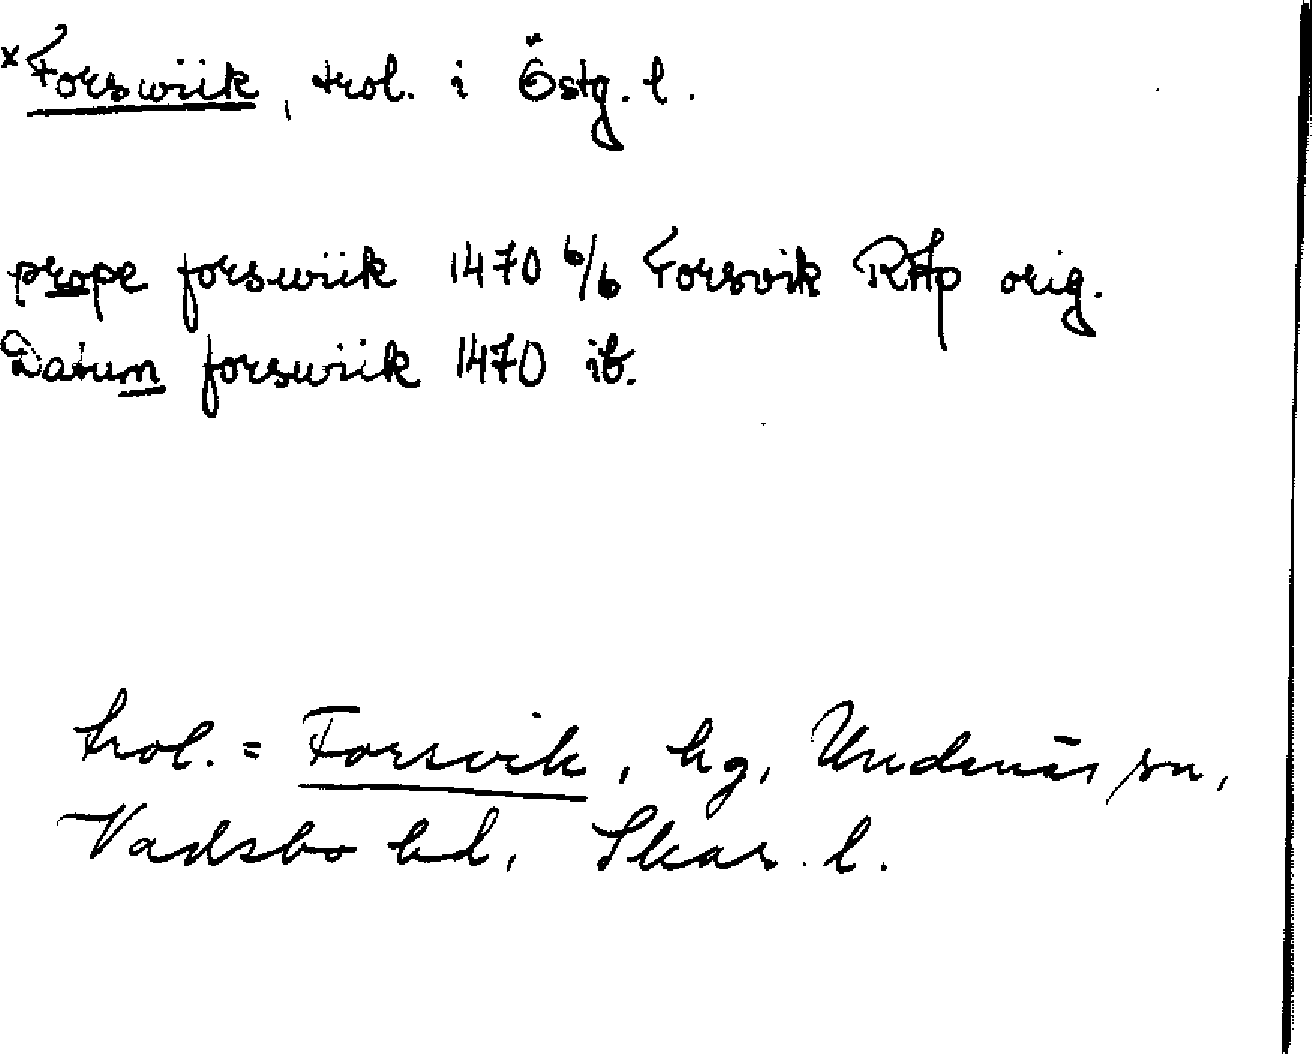 x Forswiik, trol. i Östg. l.
prope forswiik 1470 6/6 Forsvik RAp orig.
Datum forswiik 1470 ib.
trol. = Forsvik, hg, Undenäs sn,
Vadsbo hd, Skar. l.